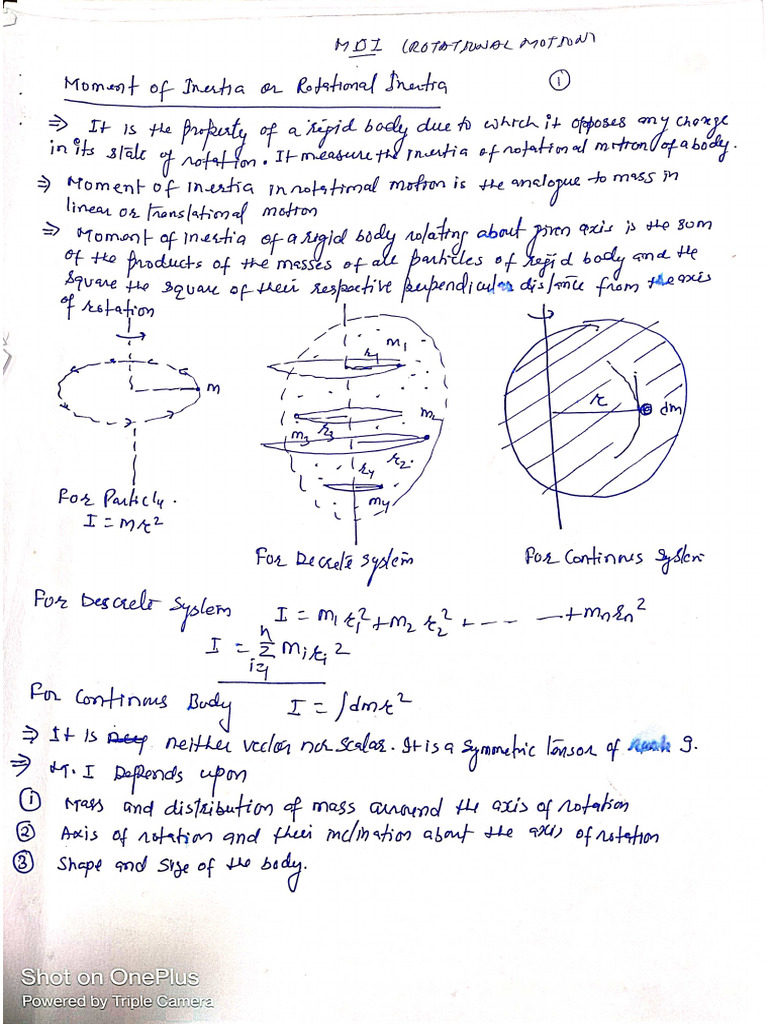 MOI (ROTATIONAL MOTION)
Moment of Inertia or Rotational Inertia
①
⇒ It is the property of a rigid body due to which it opposes any change
in its state of rotation. It measure the inertia of rotational motion of a body.
⇒ Moment of inertia in rotational motion is the analogue to mass in
linear or translational motion
⇒ Moment of inertia of a rigid body rotating about given axis is the sum
of the products of the masses of all particles of rigid body and the
square the square of their respective perpendicular distance from the axis
of rotation
m
m₁
r₁
m₂
r₃
m₃
r₂
r₄
m₄
r
dm
For Particle.
I = mr²
For Decrete system
For Continues System
For Descrete System I = m₁r₁² + m₂r₂² + -- -- + mₙrₙ²
I = n Σ i=1 mᵢrᵢ²
For Continous Body I = ∫dmr²
⇒ It is neither vector nor scalar. It is a symmetric tensor of
⇒ M.I Depends upon
① Mass and distribution of mass arround the axis of rotation
② Axis of rotation and their inclination about the axis of rotation
③ Shape and Size of the body.
Shot on OnePlus
Powered by Triple Camera